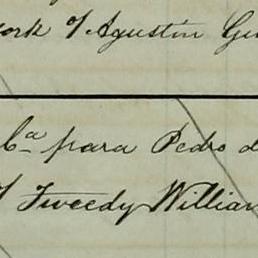 ork of Agustin Gu
Ca para Pedro d
of Tweedy William